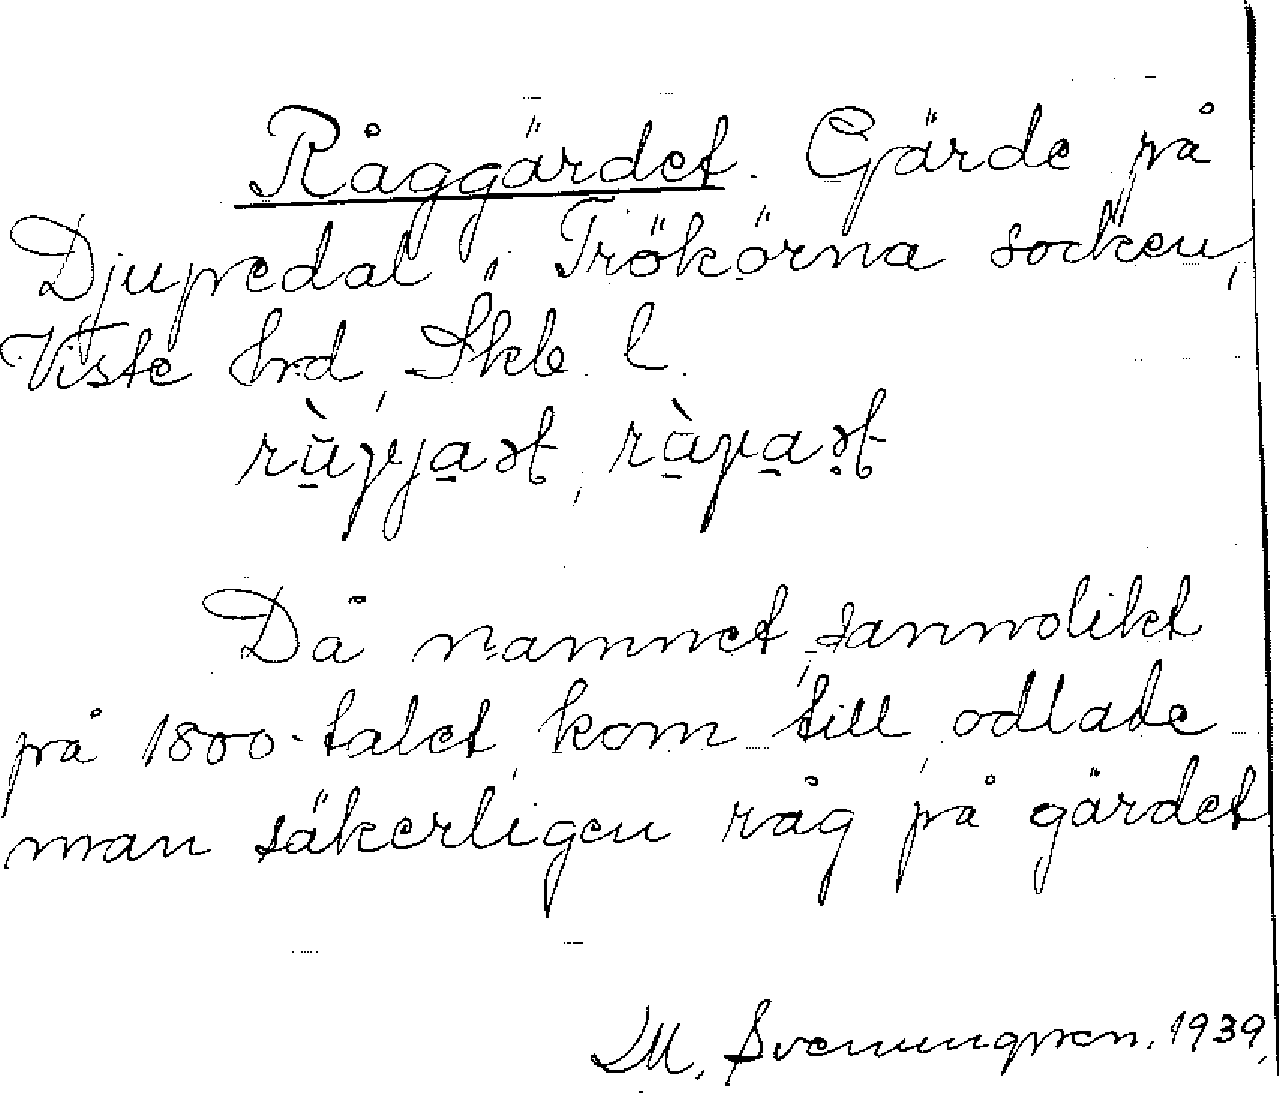 Råggärdet. Gärde på
Djupedal i Trökörna socken,
Viste hrd, Skb. l.
Då namnet sannolikt
på 1800-talet kom till, odlade
man säkerligen råg på gärdet
M. Svenungsson. 1939.